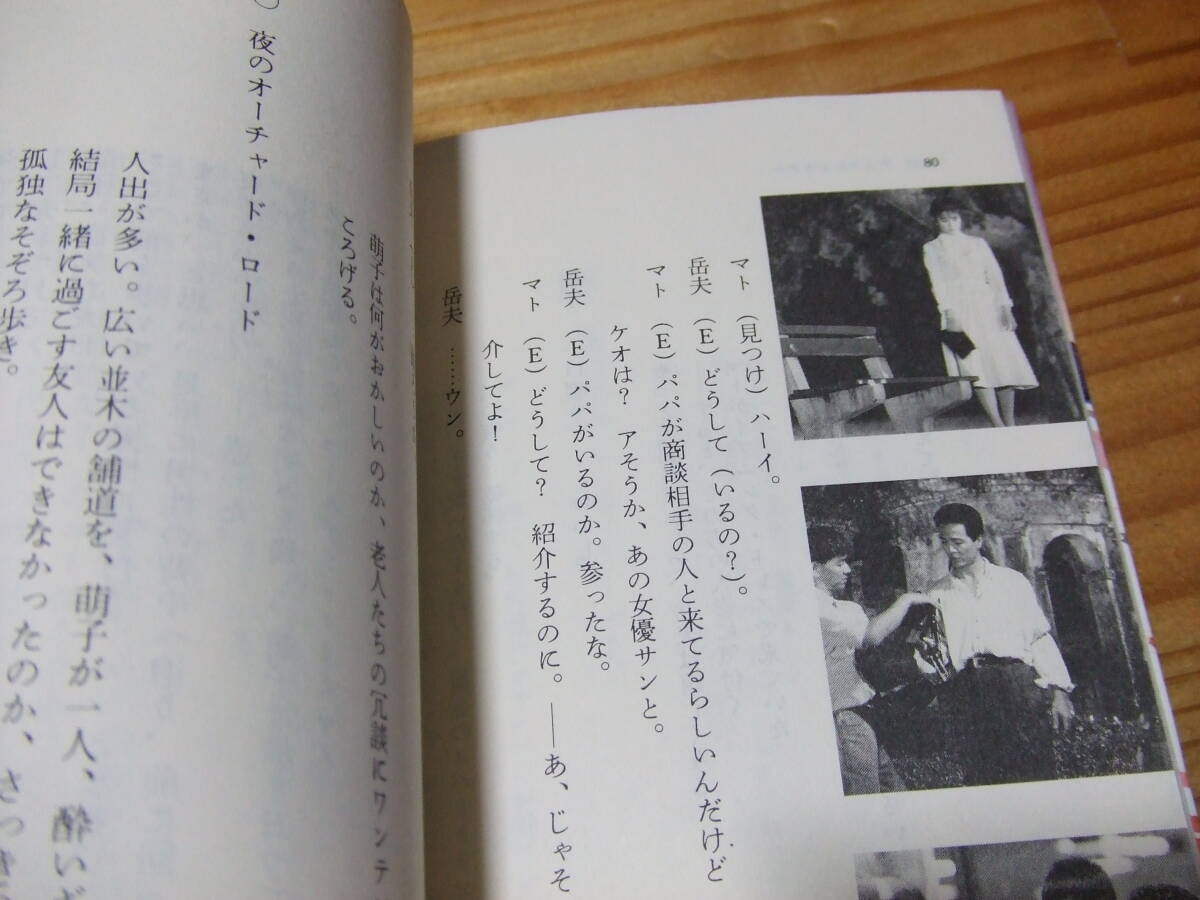 80
マト （見つけ）ハーイ。
岳夫 （E）どうして（いるの？）。
マト （E）パパが商談相手の人と来てるらしいんだけど
ケオは？ アそうか、あの女優サンと。
岳夫 （E）パパがいるのか。参ったな。
マト （E）どうして？ 紹介するのに。――あ、じゃそ
介してよ！
岳夫 ……ウン。
萌子は何がおかしいのか、老人たちの冗談にワンテ
ころげる。
夜のオーチャード・ロード
人出が多い。広い並木の舗道を、萌子が一人、酔いざ
結局一緒に過ごす友人はできなかったのか、さっき
孤独なそぞろ歩き。